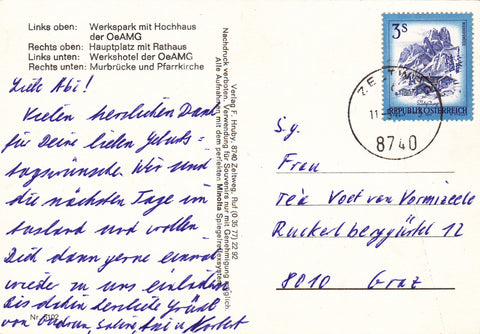 Links oben: Werkspark mit Hochhaus
der OeAMG
Rechts oben: Hauptplatz mit Rathaus
Links unten: Werkshotel der OeAMG
Rechts unten: Murbrücke und Pfarrkirche
Vielen herzlichen Dank
für Deine lieben Geburts-
tagswünsche. Wir sind
die nächsten Tage im
Ausland und wollen
Dich dann gerne einmal
wieder zu uns einladen
Bis dahin herzliche Grüße
von Gudrun, Sabine, und Norbert
Nr.
Verlag F. Hruby, 8740 Zeltweg, Ruf (0 35 77) 22 92
Nachdruck verboten, Verwendung für Souvenirs nur mit Genehmigung möglich
Alle Aufnahmen mit dem perfekten Minolta Spiegelreflexsystem
3S
REPUBLIK ÖSTERREICH
ZELTWEG
8740
S.g.
Frau
Tea Voet van Vormizeele
Ruckerlberggürtel 12
8010 Graz